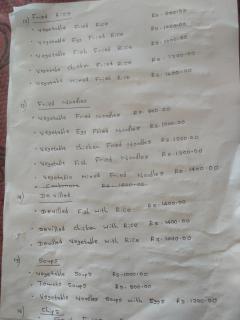 Fried Rice
• Vegetable Fried Rice
• Vegetable Egg Fried Rice Rs. 1000.00
• Vegetable Fish Fried Rice
• Vegetable Chicken Fried Rice
• Vegetable Mixed Fried Rice Rs. 1400.00
Fried Noodles
• Vegetable Fried Noodles Rs. 900.00
• Vegetable Egg Fried Noodles Rs. 1000.00
• Vegetable Chicken Fried Noodles Rs. 1300.00
• Vegetable Fish Fried Noodles Rs. 1300.00
• Vegetable Mixed Fried Noodles Rs. 1400.00
Devilled
• Devilled Fish with Rice Rs. 1400.00
• Devilled Chicken with Rice Rs. 1400.00
• Devilled Vegetable with Rice Rs. 1000.00
Soups
• Vegetable Soups Rs. 1000.00
• Tomato Soups Rs. 800.00
• Vegetable Noodles Soups with Eggs Rs. 1200.00